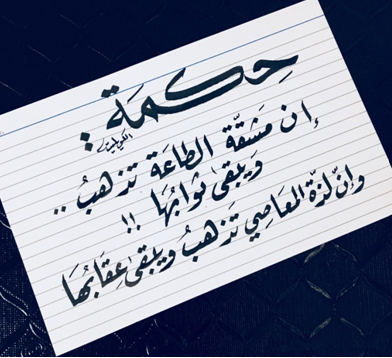 حِكمَة :
إن مَشقّة الطاعَة تذهبُ ..
وَيبقىٰ ثوابُها !!
وإنّ لذّة المعَاصِي تَذهبُ ويبقىٰ عِقابُها